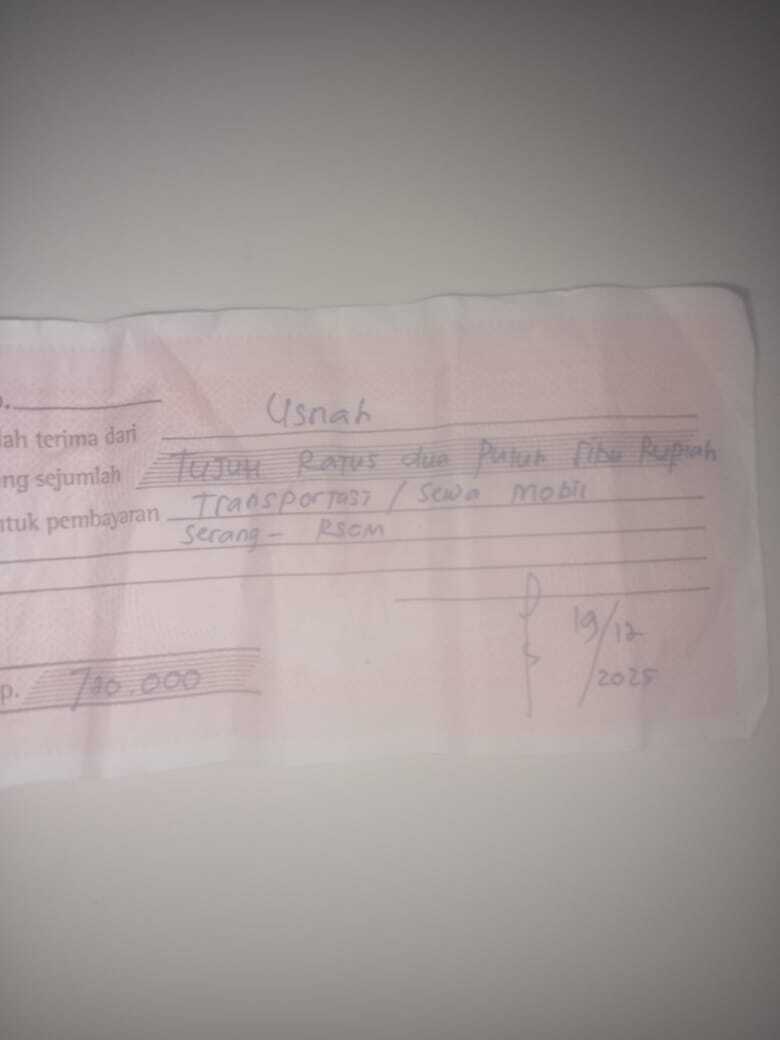 Usnah
lah terima dari
ng sejumlah Tujuh Ratus dua Puluh Ribu Rupiah
ntuk pembayaran Transportasi / Sewa Mobil
Serang - RSCM
19/12
2025
p. 720.000